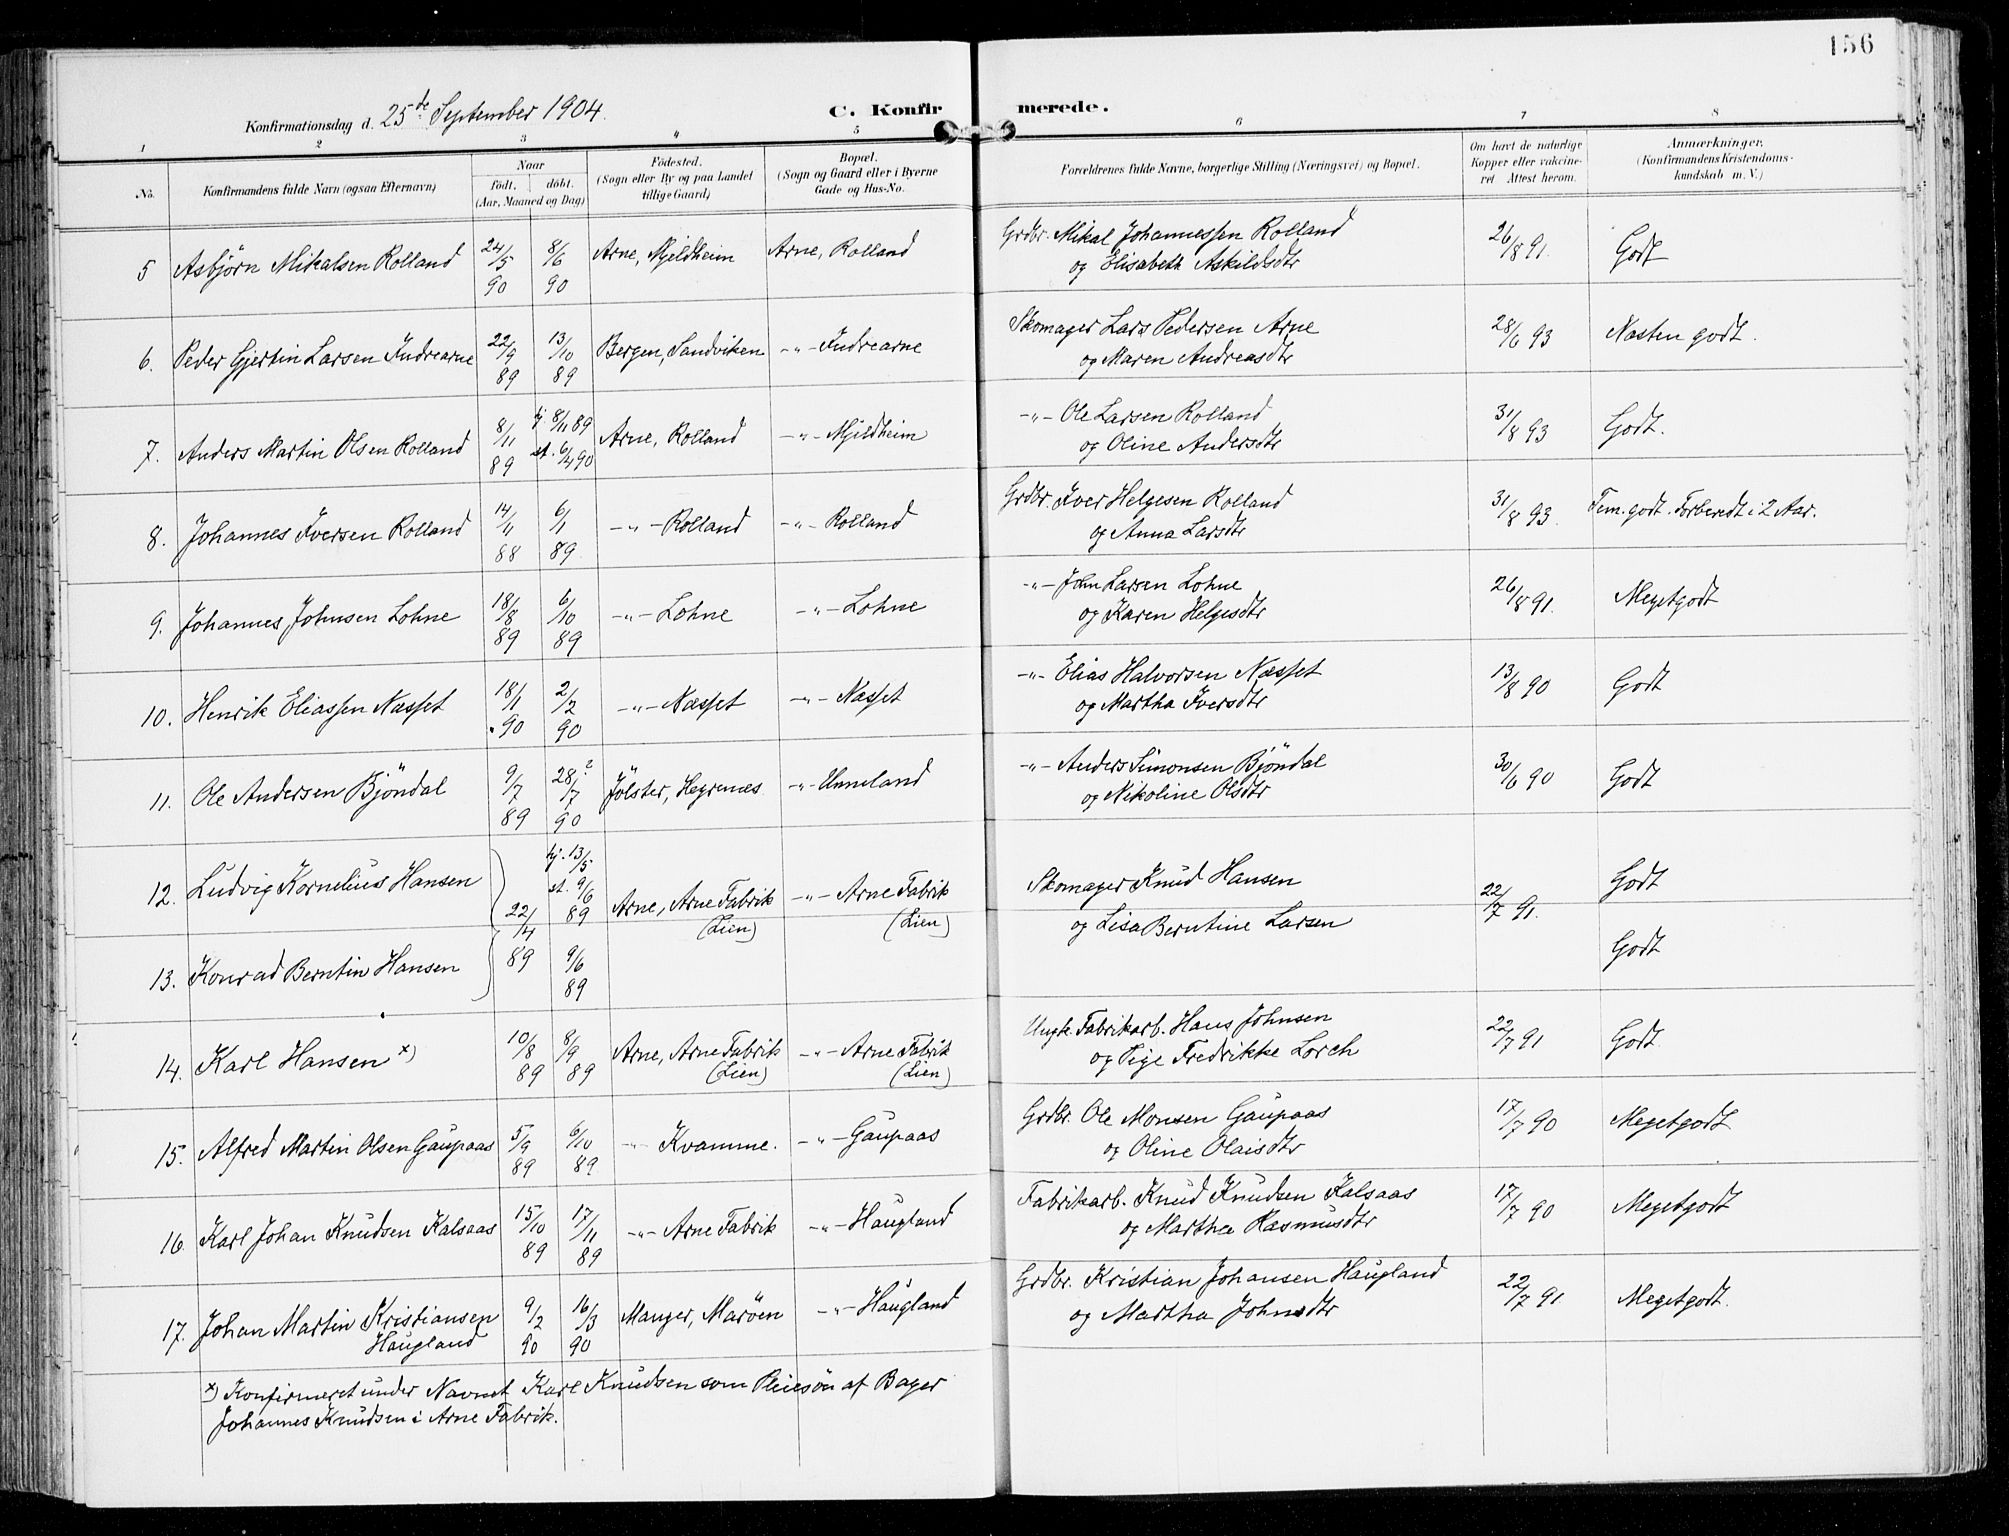 156
Konfirmationsdag d. 25de September 1904.
C. Konfir merede.
1 2 3 4 5 6 7 8
No. Konfirmandens fulde Navn (ogsaa Efternavn) Naar født, døbt. (Aar, Maaned og Dag) Fødested. (Sogn eller By og paa Landet tillige Gaard) Bopæl. (Sogn og Gaard eller i Byerne Gade og Hus-No. Forældrenes fulde Navne, borgerlige Stilling (Næringsvei) og Bopæl. Om havt de naturlige Kopper eller vakcineret Attest herom. Anmærkninger. (Konfirmandens Kristendomskundskab m. V.)
5 Asbjörn Mikalsen Rolland 24/5 90 8/6 90 Arne, Mjeldheim Arne, Rolland Grdbr. Mikal Johannessen Rolland 26/8 91. Godt
og Elisabeth Askildsdtr
6. Peder Gjertin Larsen Indrearne 22/9 89 13/10 89 Bergen, Sandviken -"- Indrearne Skomager Lars Pedersen Arne 28/6 93 Næsten godt.
og Maren Andreasdtr
7. Anders Martin Olsen Rolland 8/11 89 hj 8/11 89 st. 6/4 90 Arne, Rolland -"- Mjeldheim -"- Ole Larsen Rolland 31/8 93 Godt.
og Oline Andersdtr
8. Johannes Iversen Rolland 14/11 88 6/1 89. -"- Rolland -"- Rolland Grdbr. Iver Helgesen Rolland 31/8 93. Tem. godt. Forberedt i 2 Aar.
og Anna Larsdtr
9. Johannes Johnsen Lohne 18/8 89 6/10 89 -"- Lohne -"- Lohne -"- John Larsen Lohne 26/8 91. Meget godt
og Karen Helgesdtr
10. Henrik Eliassen Næsset 18/1 90 2/2 90 -"- Næsset -"- Næsset -"- Elias Halvorsen Næsset 13/8 90 Godt
og Martha Iversdtr
11. Ole Andersen Bjöndal 9/7 89 28/7 ? 90 Jölster, Hegrenes -"- Unneland -"- Anders Simonsen Bjöndal 30/6 90 Godt
og Nikoline Olsdtr
12. Ludvig Kornelius Hansen 22/4 89 hj. 13/5 st. 9/6 89 Arne, Arne Fabrik (Lien) -"- Arne Fabrik (Lien) Skomager Knud Hansen 22/7 91. Godt
og Lisa Berntine Larsen
13. Konrad Berntin Hansen 9/6 89 Godt
14. Karl Hansen x) 10/8 89 8/9 89 Arne, Arne Fabrik (Lien) -"- Arne Fabrik (Lien) Ungk. Fabrikarb. Hans Johnsen 22/7 91 Godt
og Pige Fredrikke Lorch
15. Alfred Martin Olsen Gaupaas 5/9 89 6/10 89 -"- Kvamme. -"- Gaupaas Grdbr. Ole Monsen Gaupaas 17/7 90 Meget godt
og Oline Olaisdtr
16. Karl Johan Knudsen Kalsaas 15/10 89 17/11 89 -"- Arne Fabrik -"- Haugland Fabrikarb. Knud Knudsen Kalsaas 17/7 90 Meget godt
og Martha Rasmusdtr
17. Johan Martin Kristiansen Haugland 9/2 90 16/3 90 Manger, Maröen -"- Haugland Grdbr. Kristian Johansen Haugland 22/7 91 Meget godt.
og Martha Johnsdtr
x) Konfirmeret under Navnet Karl Knudsen som Pleiesön af Bager
Johannes Knudsen i Arne Fabrik.